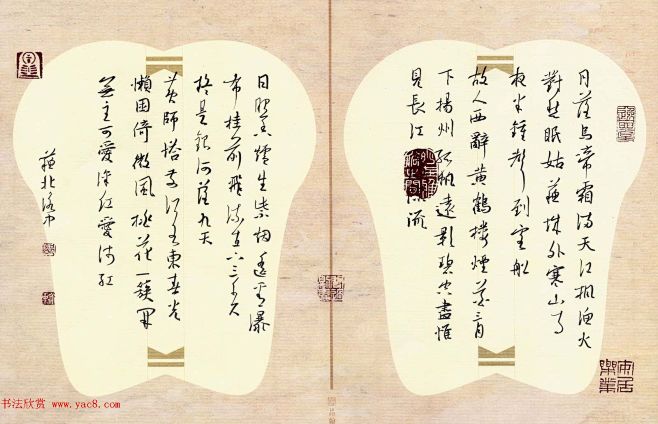 月落乌啼霜满天江枫渔火
对愁眠姑苏城外寒山寺
夜半钟声到客船
故人西辞黄鹤楼烟花三月
下扬州孤帆远影碧空尽惟
见长江天际流
日照香炉生紫烟遥看瀑
布挂前川飞流直下三千尺
疑是银河落九天
黄师塔前江水东春光
懒困倚微风桃花一簇开
无主可爱深红爱浅红
书法欣赏 www.yac8.com